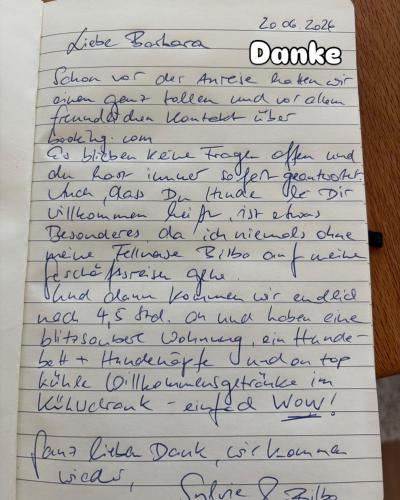 20.06.2024
Liebe Barbara
Danke
Schon vor der Anreise hatten wir
einen ganz tollen und vor allem
freundlichen Kontakt über
booking.com
Es blieben keine Fragen offen und
du hast immer sofort geantwortet.
Auch, dass Du Hunde bei Dir
willkommen heißt, ist etwas
Besonderes, da ich niemals ohne
meine Fellnase Bilbo auf meine
Geschäftsreisen gehe.
Und dann kommen wir endlich
nach 4,5 Std. an und haben eine
blitzsaubere Wohnung, ein Hunde-
bett + Hundenäpfe und on top
kühle Willkommensgetränke im
Kühlschrank - einfach WOW!
Ganz lieben Dank, wir kommen
wieder,
Sylvie & Bilbo